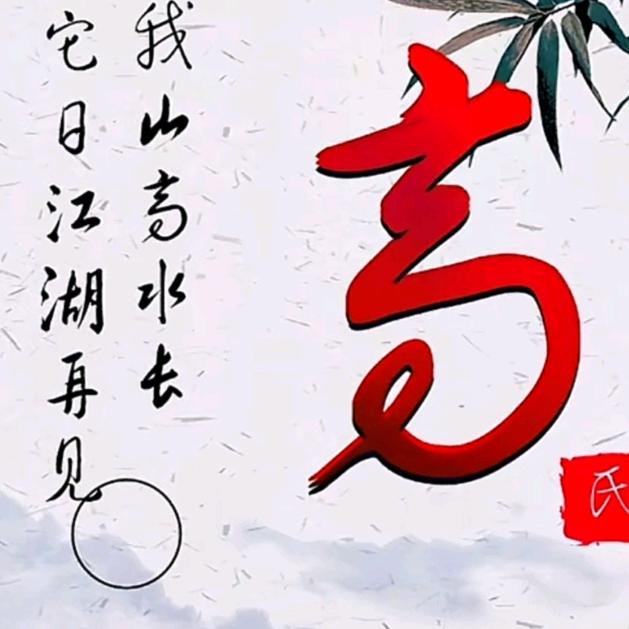 高
氏
我山高水长
它日江湖再见